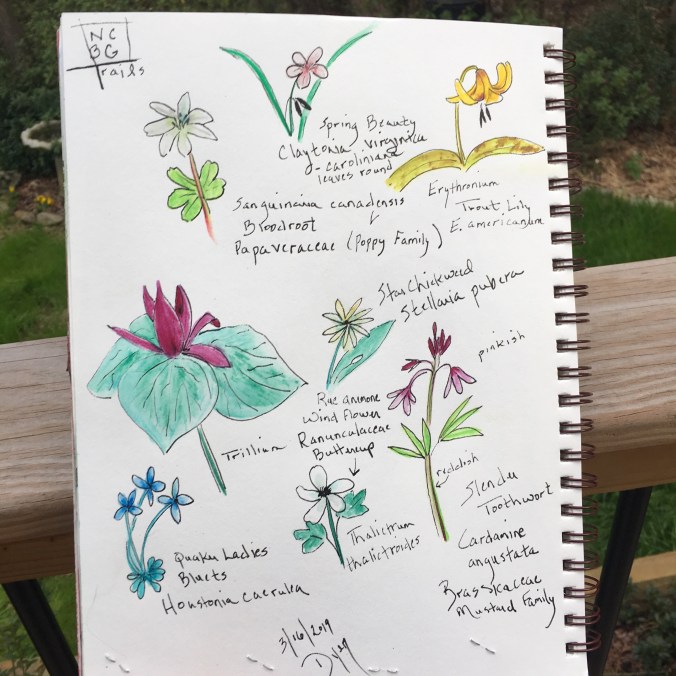 NC
BG
Trails
Spring Beauty
Claytonia virginica
caroliniana
leaves round
Sanguinaria canadensis
Bloodroot
Papaveraceae (Poppy Family)
Erythronium
Trout Lily
E. americanum
Star Chickweed
Stellaria pubera
Trillium
Rue anmone
Wind Flower
Ranunculaceae
Buttercup
Thalictrum
thalictroides
pinkish
reddish
Slender
Toothwort
Cardamine
angustata
Brassicaceae
Mustard Family
Quaker Ladies
Bluets
Houstonia caerulea
3/16/2019